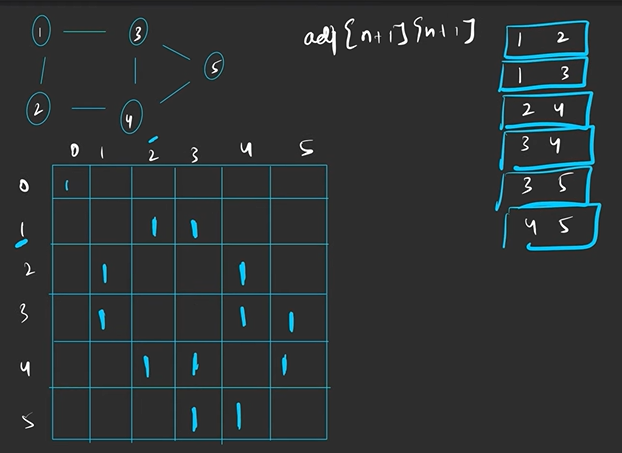 1 3
5
2 4
adj[n+1][n+1]
1 2
1 3
2 4
3 4
3 5
4 5
0 1 2 3 4 5
0 1
1 1 1
2 1 1
3 1 1 1
4 1 1 1
5 1 1